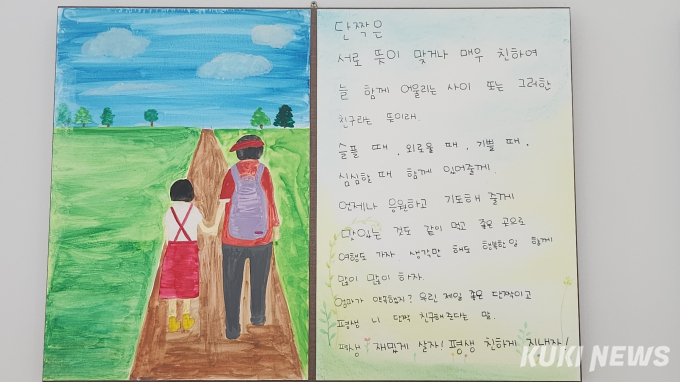 단짝은
서로 뜻이 맞거나 매우 친하여
늘 함께 어울리는 사이 또는 그러한
친구라는 뜻이래.
슬플 때, 외로울 때, 기쁠 때,
심심할 때 함께 있어줄게.
언제나 응원하고 기도해 줄게
맛있는 것도 같이 먹고 좋은 곳으로
여행도 가자 생각만 해도 행복한 일 함께
많이 많이 하자.
엄마가 말했지? 우린 제일 좋은 단짝이고
평생 니 단짝 친구해준다는 말.
평생 재밌게 살자! 평생 친하게 지내자!
KUKI NEWS